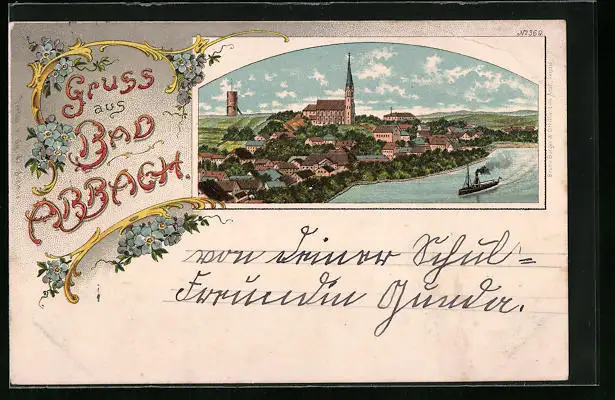 No 369
Gruss
aus
BAD
ABBACH.
von deiner Schul=
Freundin Gunda.